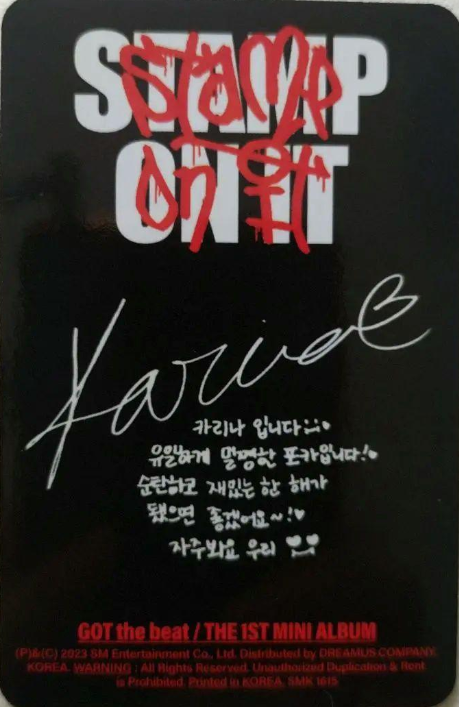 STAMP
ON IT
Stamp
on it
Karina
카리나 입니다
유일하게 멀쩡한 포카입니다!
순탄하고 재밌는 한 해가
됐으면 좋겠어요~!♥
자주봐요 우리
GOT the beat / THE 1ST MINI ALBUM
(P)&(C) 2023 SM Entertainment Co., Ltd. Distributed by DREAMUS COMPANY.
KOREA. WARNING : All Rights Reserved. Unauthorized Duplication & Rent
is Prohibited. Printed in KOREA. SMK 1615